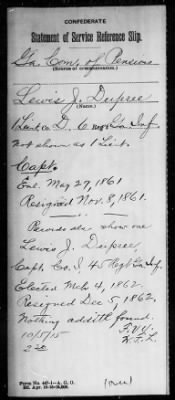 CONFEDERATE
Statement of Service Reference Slip.
Ga. Com. of Pensions
(Source of communication.)
Lewis J. Dupree
(Name.)
1 Lieut Co. D, 6 Regt Ga. Inf.
Not shown as 1 Lieut.
Capt.
Enl. May 27, 1861
Resigned Nov. 8, 1861.
Records also show one
Lewis J. Dupree,
Capt. Co. I, 45 Regt Ga. Inf.
Elected Mch 4, 1862.
Resigned Dec 5, 1862.
Nothing addith found.
10/5/15